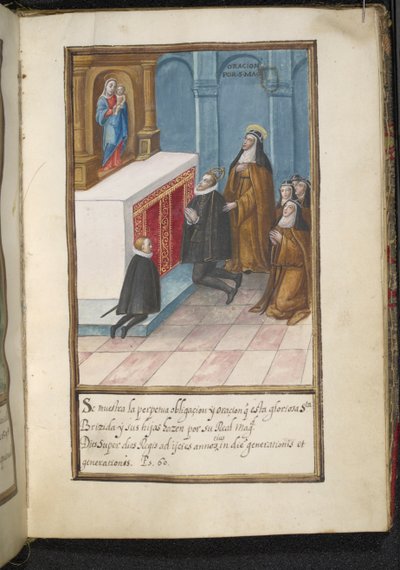 ORACION
POR·S·MAG
Se muestra la perpetua obligacion y oracion q̃ esta gloriosa Sta
Brizida y sus hijas hazen por su Real Mag.
Dies super dies Regis adijcies annos eius in diē generationis et
generationis. Ps. 60.